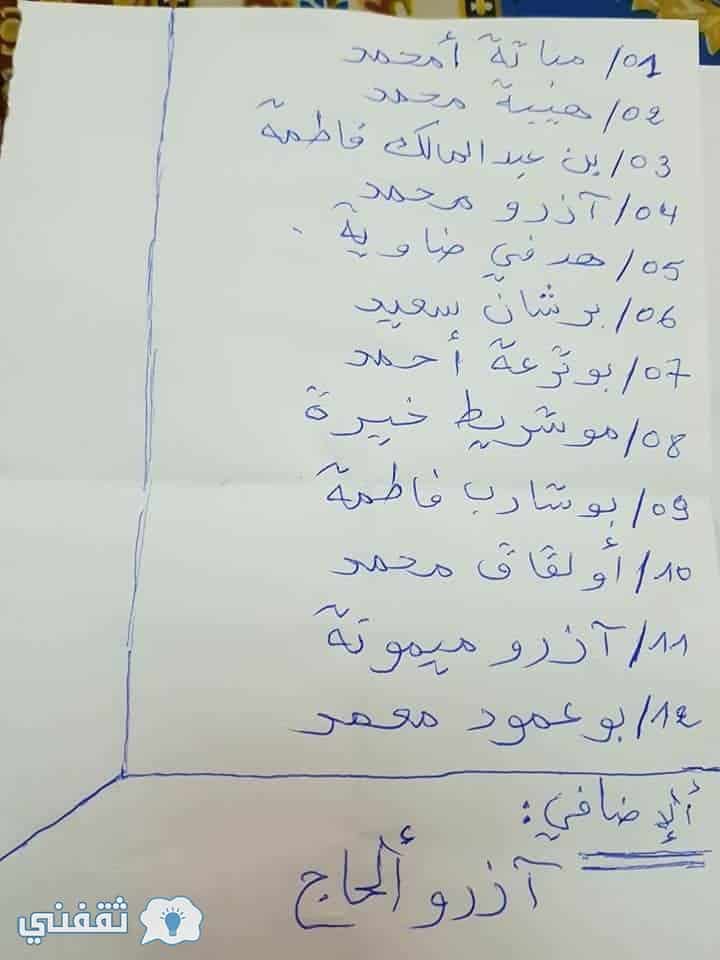 01/ مباتة أمحمد
02/ هيبة محمد
03/ بن عبد المالك فاطمة
04/ آذرو محمد
05/ هدفي ضاوية
06/ برشان سعيد
07/ بوترعة أحمد
08/ موشريط خيرة
09/ بوشارب فاطمة
10/ أولقاق محمد
11/ آذرو ميمونة
12/ بوعمود معمر
ألإضافي:
آذرو ألحاج
ثقفني